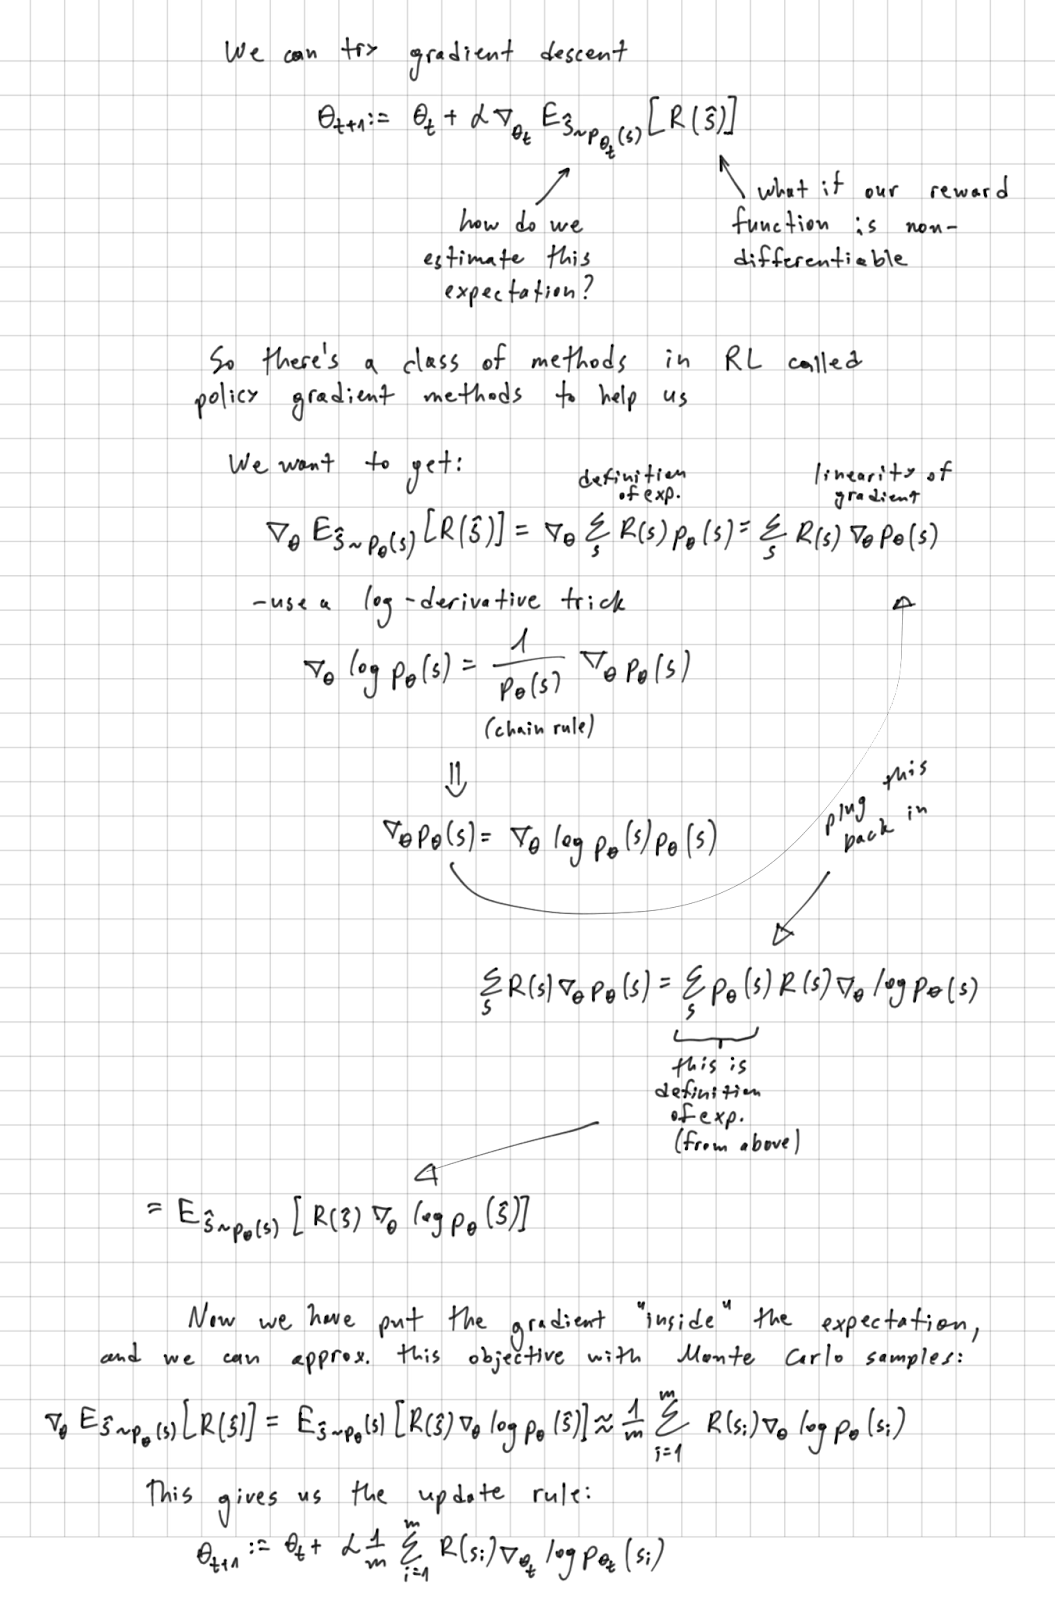 We can try gradient descent
θ_{t+1} := θ_t + α ∇_{θ_t} E_{ŝ~p_{θ_t}(s)} [R(ŝ)]
how do we
estimate this
expectation?
what if our reward
function is non-
differentiable
So there's a class of methods in RL called
policy gradient methods to help us
We want to get:
definition
of exp.
linearity of
gradient
∇_θ E_{ŝ~p_θ(s)} [R(ŝ)] = ∇_θ Σ_s R(s) p_θ(s) = Σ_s R(s) ∇_θ p_θ(s)
- use a log-derivative trick
∇_θ log p_θ(s) = 1/p_θ(s) ∇_θ p_θ(s)
(chain rule)
⇓
∇_θ p_θ(s) = ∇_θ log p_θ(s) p_θ(s)
plug this
back in
Σ_s R(s) ∇_θ p_θ(s) = Σ_s p_θ(s) R(s) ∇_θ log p_θ(s)
this is
definition
of exp.
(from above)
= E_{ŝ~p_θ(s)} [R(ŝ) ∇_θ log p_θ(ŝ)]
Now we have put the gradient "inside" the expectation,
and we can approx. this objective with Monte Carlo samples:
∇_θ E_{ŝ~p_θ(s)} [R(ŝ)] = E_{ŝ~p_θ(s)} [R(ŝ) ∇_θ log p_θ(ŝ)] ≈ 1/m Σ_{i=1}^m R(s_i) ∇_θ log p_θ(s_i)
This gives us the update rule:
θ_{t+1} := θ_t + α 1/m Σ_{i=1}^m R(s_i) ∇_{θ_t} log p_{θ_t}(s_i)